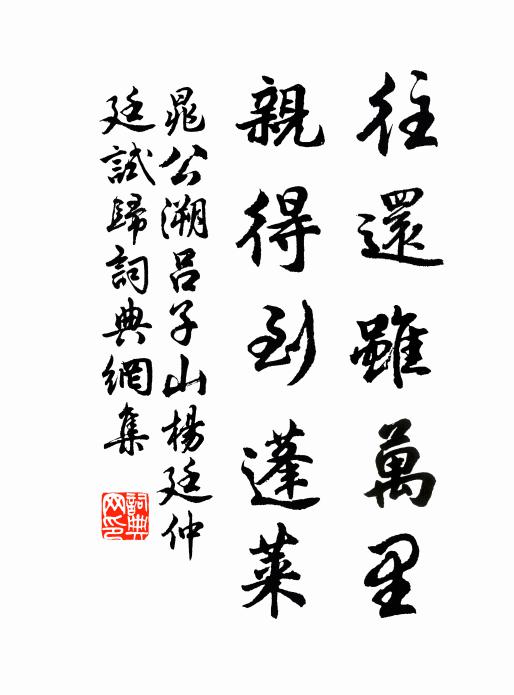 往還雖萬里
親得到蓬萊
晁公溯呂子山楊廷仲
廷試歸詞典網集
詞典網印